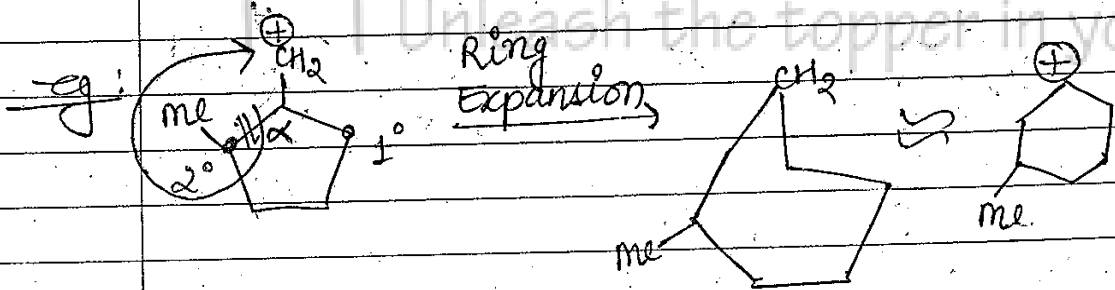 Unleash the topper in yo
eg:
⊕
CH2
Me
α
2°
1°
Ring
Expansion
CH2
Me
≈
⊕
Me.